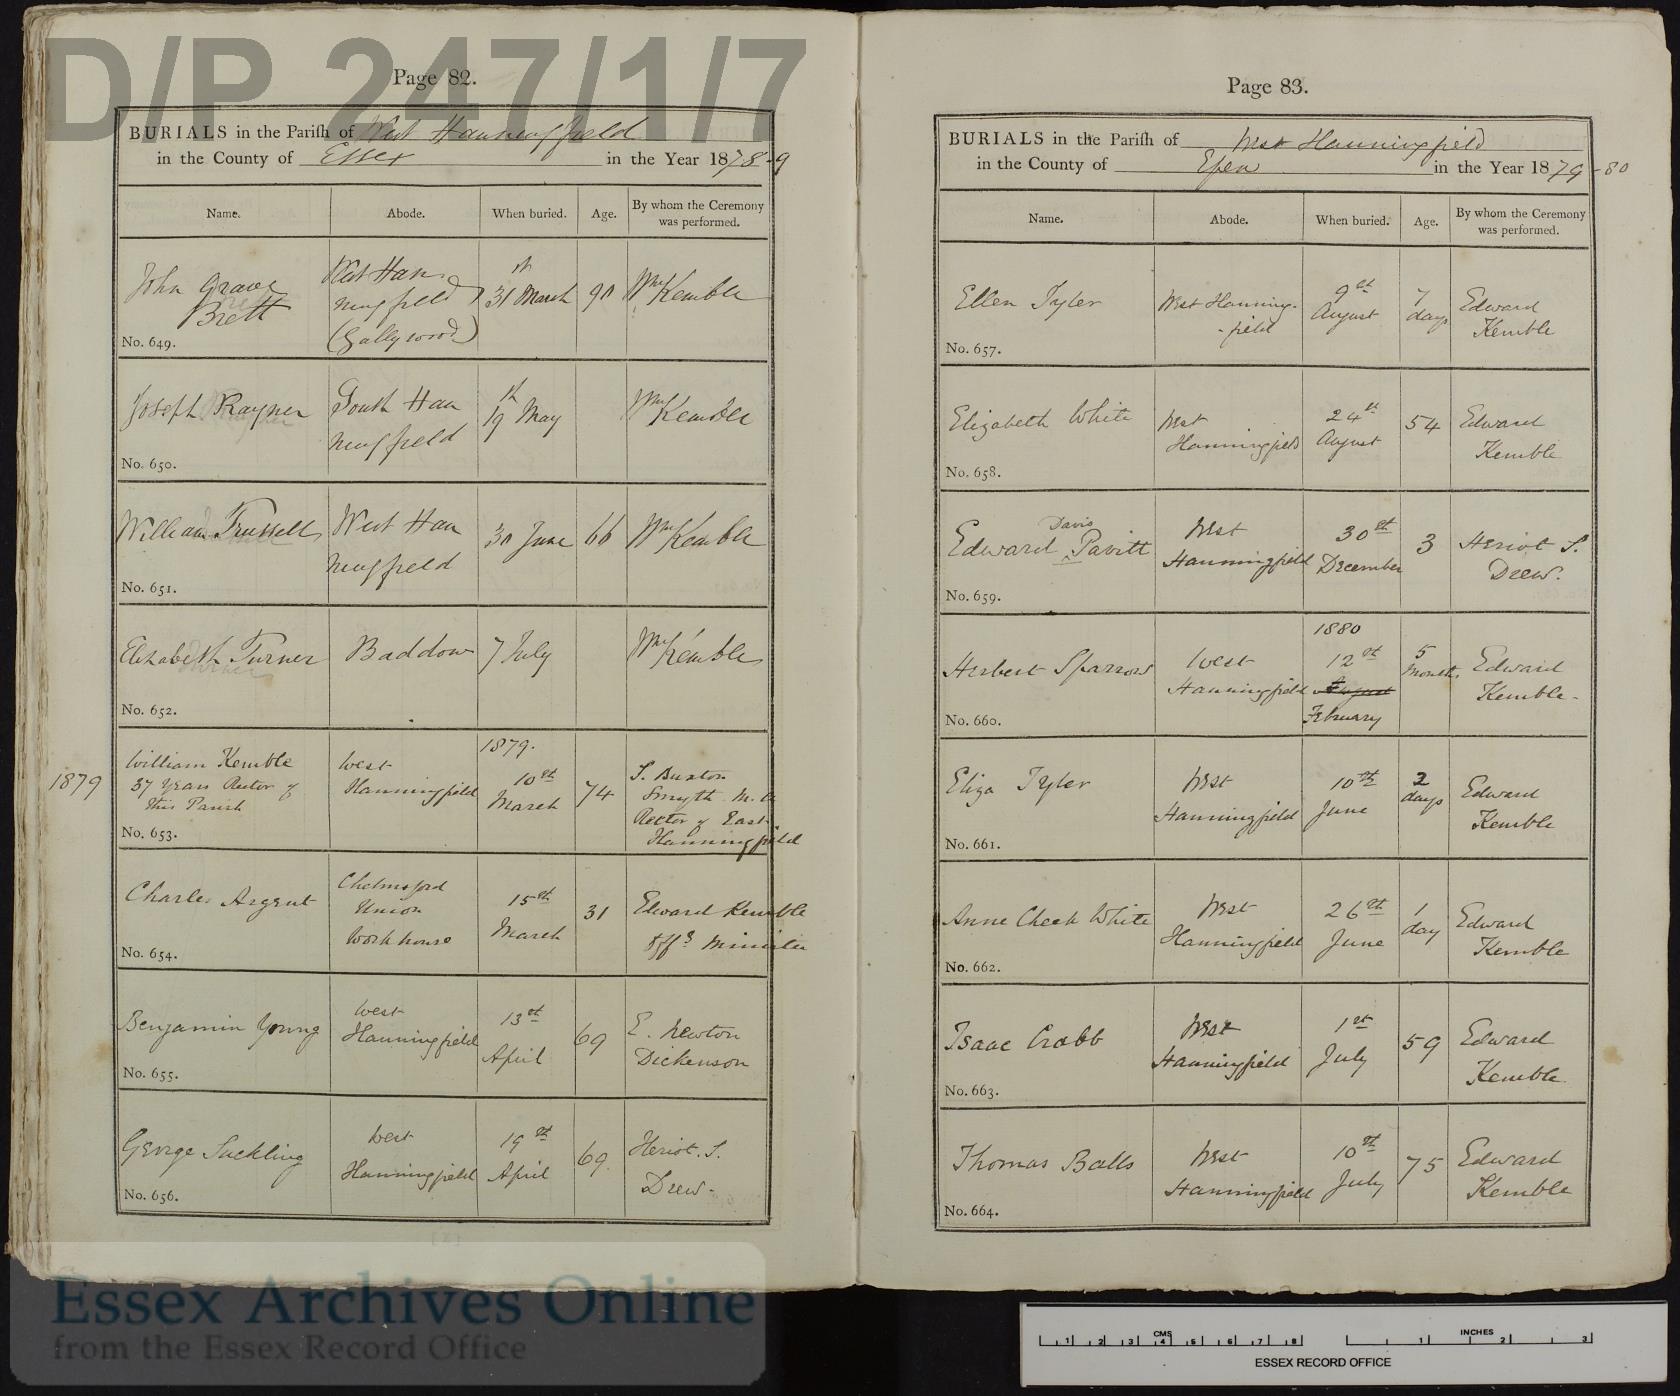 D/P 247/1/7
Page 82.
BURIALS in the Parish of West Hanningfield
in the County of Essex in the Year 1878-9
Name. Abode. When buried. Age. By whom the Ceremony was performed.
John Grave West Han 31st March 90 Wm Kemble
Brett ningfield
(Gallywood)
No. 649.
Joseph Rayner South Han 19th May Wm Kemble
ningfield
No. 650.
William Trussell West Han 30 June 66 Wm Kemble
ningfield
No. 651.
Elizabeth Turner Baddow 7 July Wm Kemble
No. 652.
1879
William Kemble West 1879. 74 S. Buxton
37 years Rector of Hanningfield 10th Smyth M.A
this Parish March Rector of East
No. 653. Hanningfield
Charles Argent Chelmsford 15th 31 Edward Kemble
Union March Offg Minister
Workhouse
No. 654.
Benjamin Young West 13th 69 E. Newton
Hanningfield April Dickenson
No. 655.
George Suckling West 19th 69 Heriot. S.
Hanningfield April Drew.
No. 656.
Page 83.
BURIALS in the Parish of West Hanningfield
in the County of Essex in the Year 1879-80
Name. Abode. When buried. Age. By whom the Ceremony was performed.
Ellen Tyler West Hanning- 9th 7 Edward
-field August days Kemble
No. 657.
Elizabeth White West 24th 54 Edward
Hanningfield August Kemble
No. 658.
Edward Davis Pavitt West 30th 3 Heriot S.
Hanningfield December Drew.
No. 659.
Herbert Sparrow West 1880 5 Edward
Hanningfield 12th months Kemble.
August
February
No. 660.
Eliza Tyler West 10th 2 Edward
Hanningfield June days Kemble
No. 661.
Anne Cheek White West 26th 1 Edward
Hanningfield June day Kemble
No. 662.
Isaac Crabb West 1st 59 Edward
Hanningfield July Kemble
No. 663.
Thomas Balls West 10th 75 Edward
Hanningfield July Kemble
No. 664.
Essex Archives Online
from the Essex Record Office
CMS
1 2 3 4 5 6 7 8
INCHES
1 2 3
ESSEX RECORD OFFICE